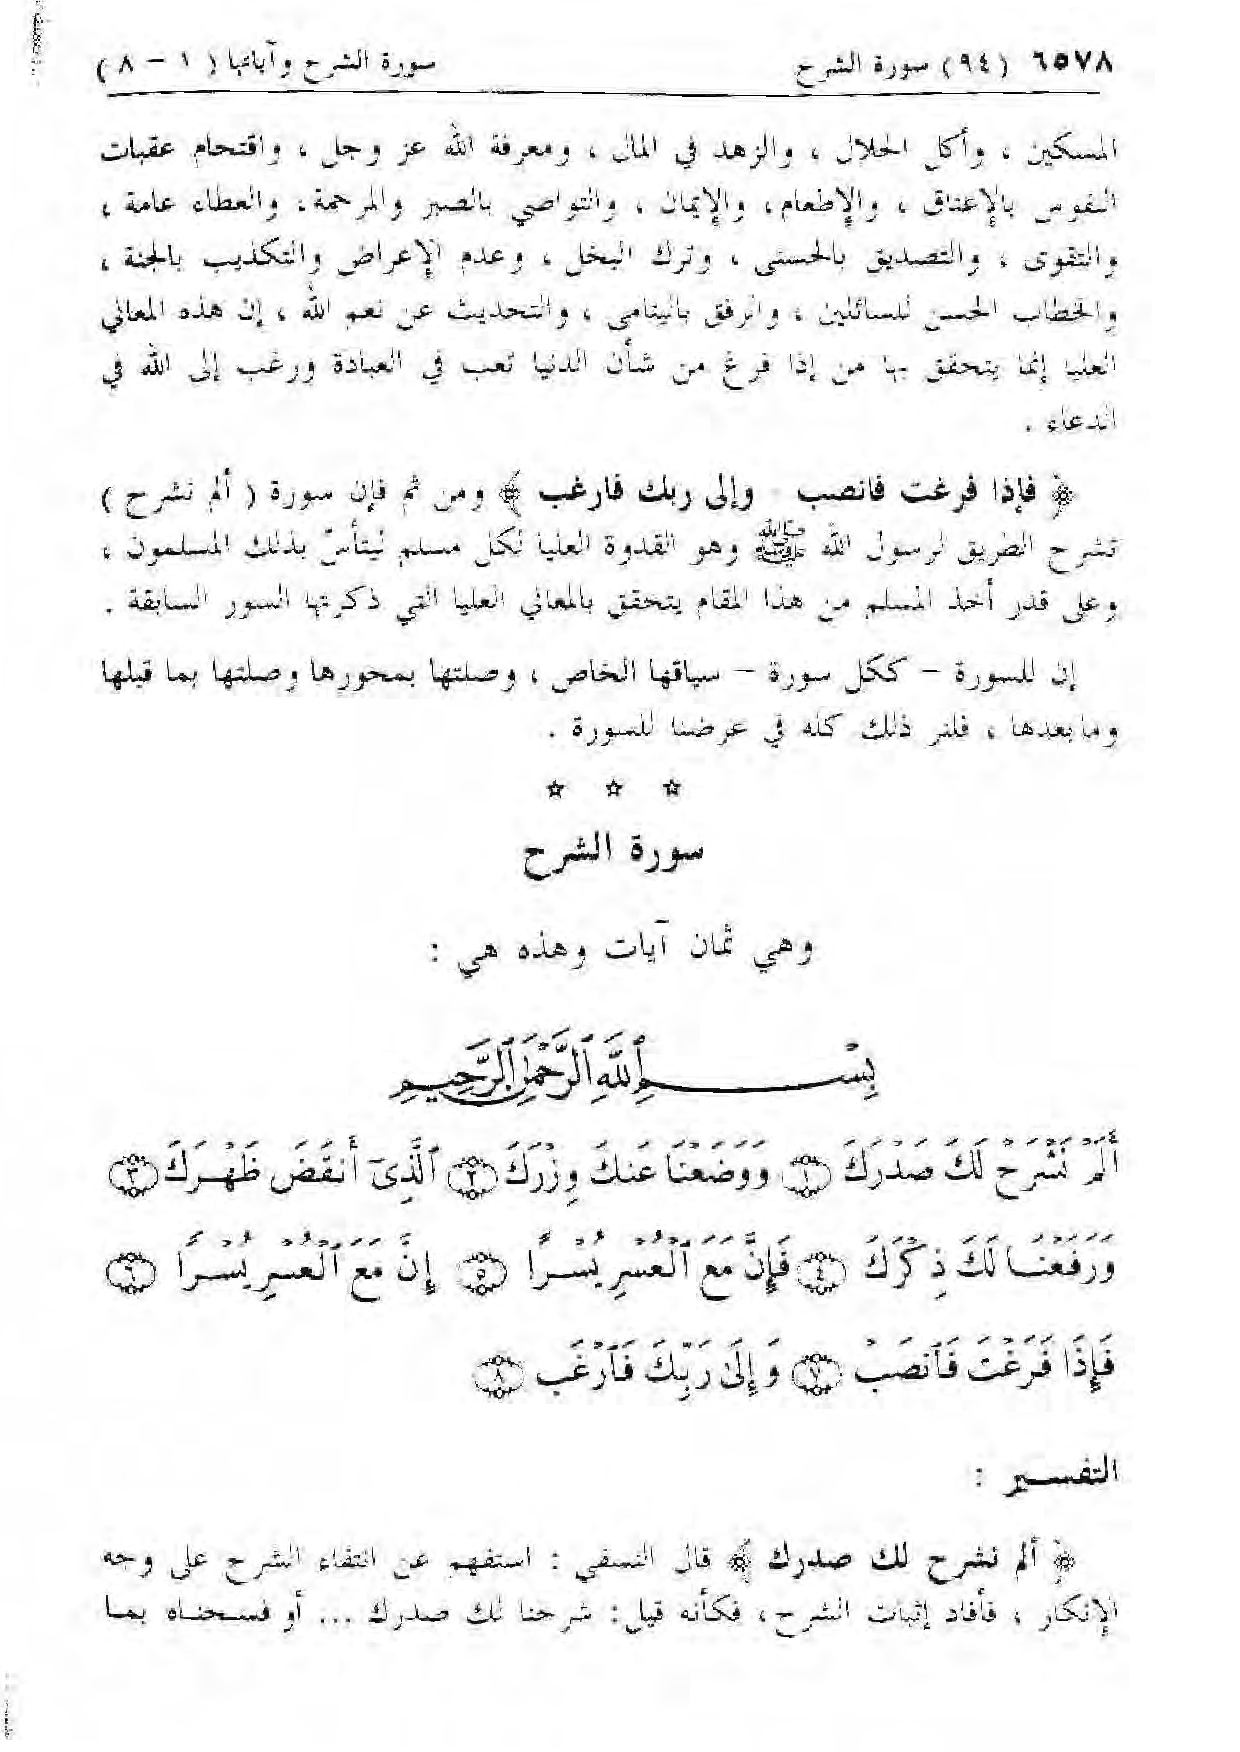 ٦٥٧٨ (٩٤) سورة الشرح سورة الشرح وآياتها ( ١ – ٨ )
المسكين ، وأكل الحلال ، والزهد في المال ، ومعرفة الله عز وجل ، واقتحام عقبات
النفوس بالإعتاق ، والإطعام، والإيمان ، والتواصي بالصبر والمرحمة، والعطاء عامة ،
والتقوى ، والتصديق بالحسنى ، وترك البخل ، وعدم الإعراض والتكذيب بالجنة ،
والخطاب الحسن للسائلين ، والرفق باليتامى ، والتحديث عن نعم الله ، إن هذه المعاني
العليا إنما يتحقق بها من إذا فرغ من شأن الدنيا تعب في العبادة ورغب إلى الله في
الدعاء .
﴿ فإذا فرغت فانصب وإلى ربك فارغب ﴾ ومن ثم فإن سورة ( ألم نشرح )
تشرح الطريق لرسول الله ﷺ وهو القدوة العليا لكل مسلم ليتأسّ بذلك المسلمون ،
وعلى قدر أخذ المسلم من هذا المقام يتحقق بالمعاني العليا التي ذكرتها السور السابقة .
إن للسورة – ككل سورة – سياقها الخاص ، وصلتها بمحورها وصلتها بما قبلها
وما بعدها ، فلنر ذلك كله في عرضنا للسورة .
☆ ☆ ☆
سورة الشرح
وهي ثمان آيات وهذه هي :
بِسْمِ ٱللَّهِ ٱلرَّحْمَٰنِ ٱلرَّحِيمِ
أَلَمْ نَشْرَحْ لَكَ صَدْرَكَ ١ وَوَضَعْنَا عَنكَ وِزْرَكَ ٢ ٱلَّذِىٓ أَنقَضَ ظَهْرَكَ ٣
وَرَفَعْنَا لَكَ ذِكْرَكَ ٤ فَإِنَّ مَعَ ٱلْعُسْرِ يُسْرًا ٥ إِنَّ مَعَ ٱلْعُسْرِ يُسْرًا ٦
فَإِذَا فَرَغْتَ فَٱنصَبْ ٧ وَإِلَىٰ رَبِّكَ فَٱرْغَب ٨
التفسير :
﴿ ألم نشرح لك صدرك ﴾ قال النسفي : استفهم عن انتفاء الشرح على وجه
الإنكار ، فأفاد إثبات الشرح، فكأنه قيل: شرحنا لك صدرك ... أو فسحناه بما